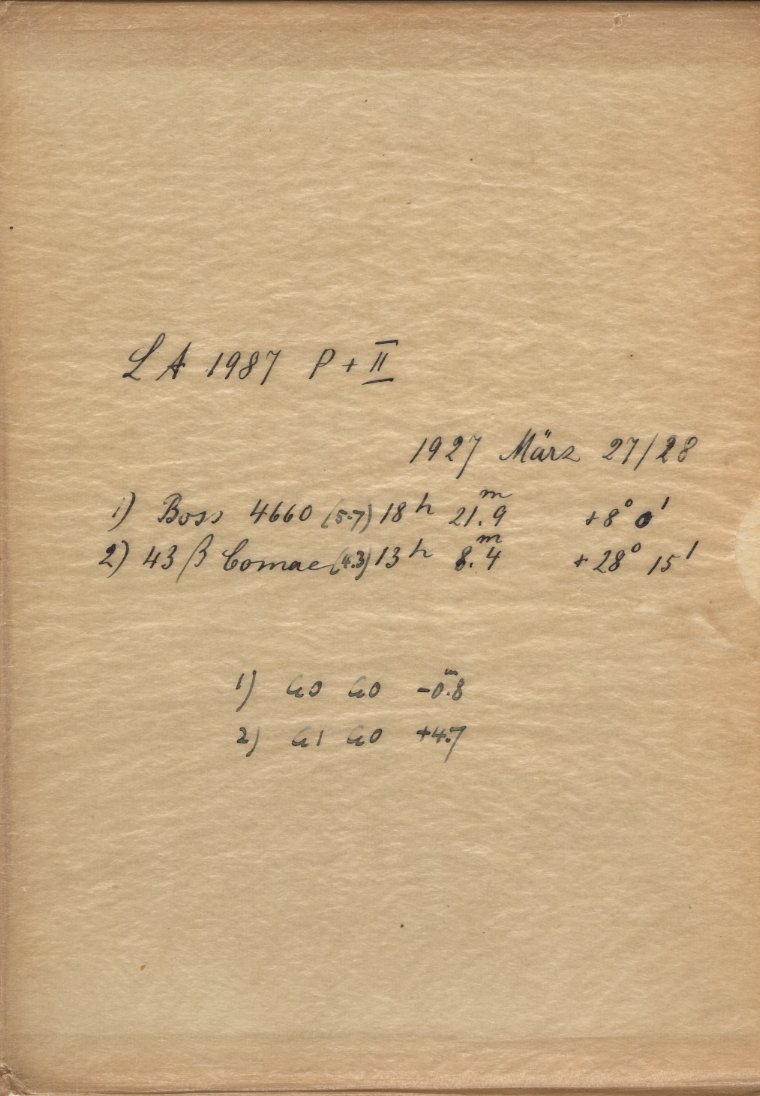 LA 1987 P + II
1927 März 27/28
1) Boss 4660 (5.7) 18h 21.m9 +8° 0'
2) 43 β Comae (4.3) 13h 8.m4 +28° 15'
1) G0 G0 -0.m8
2) G1 G0 +4.7